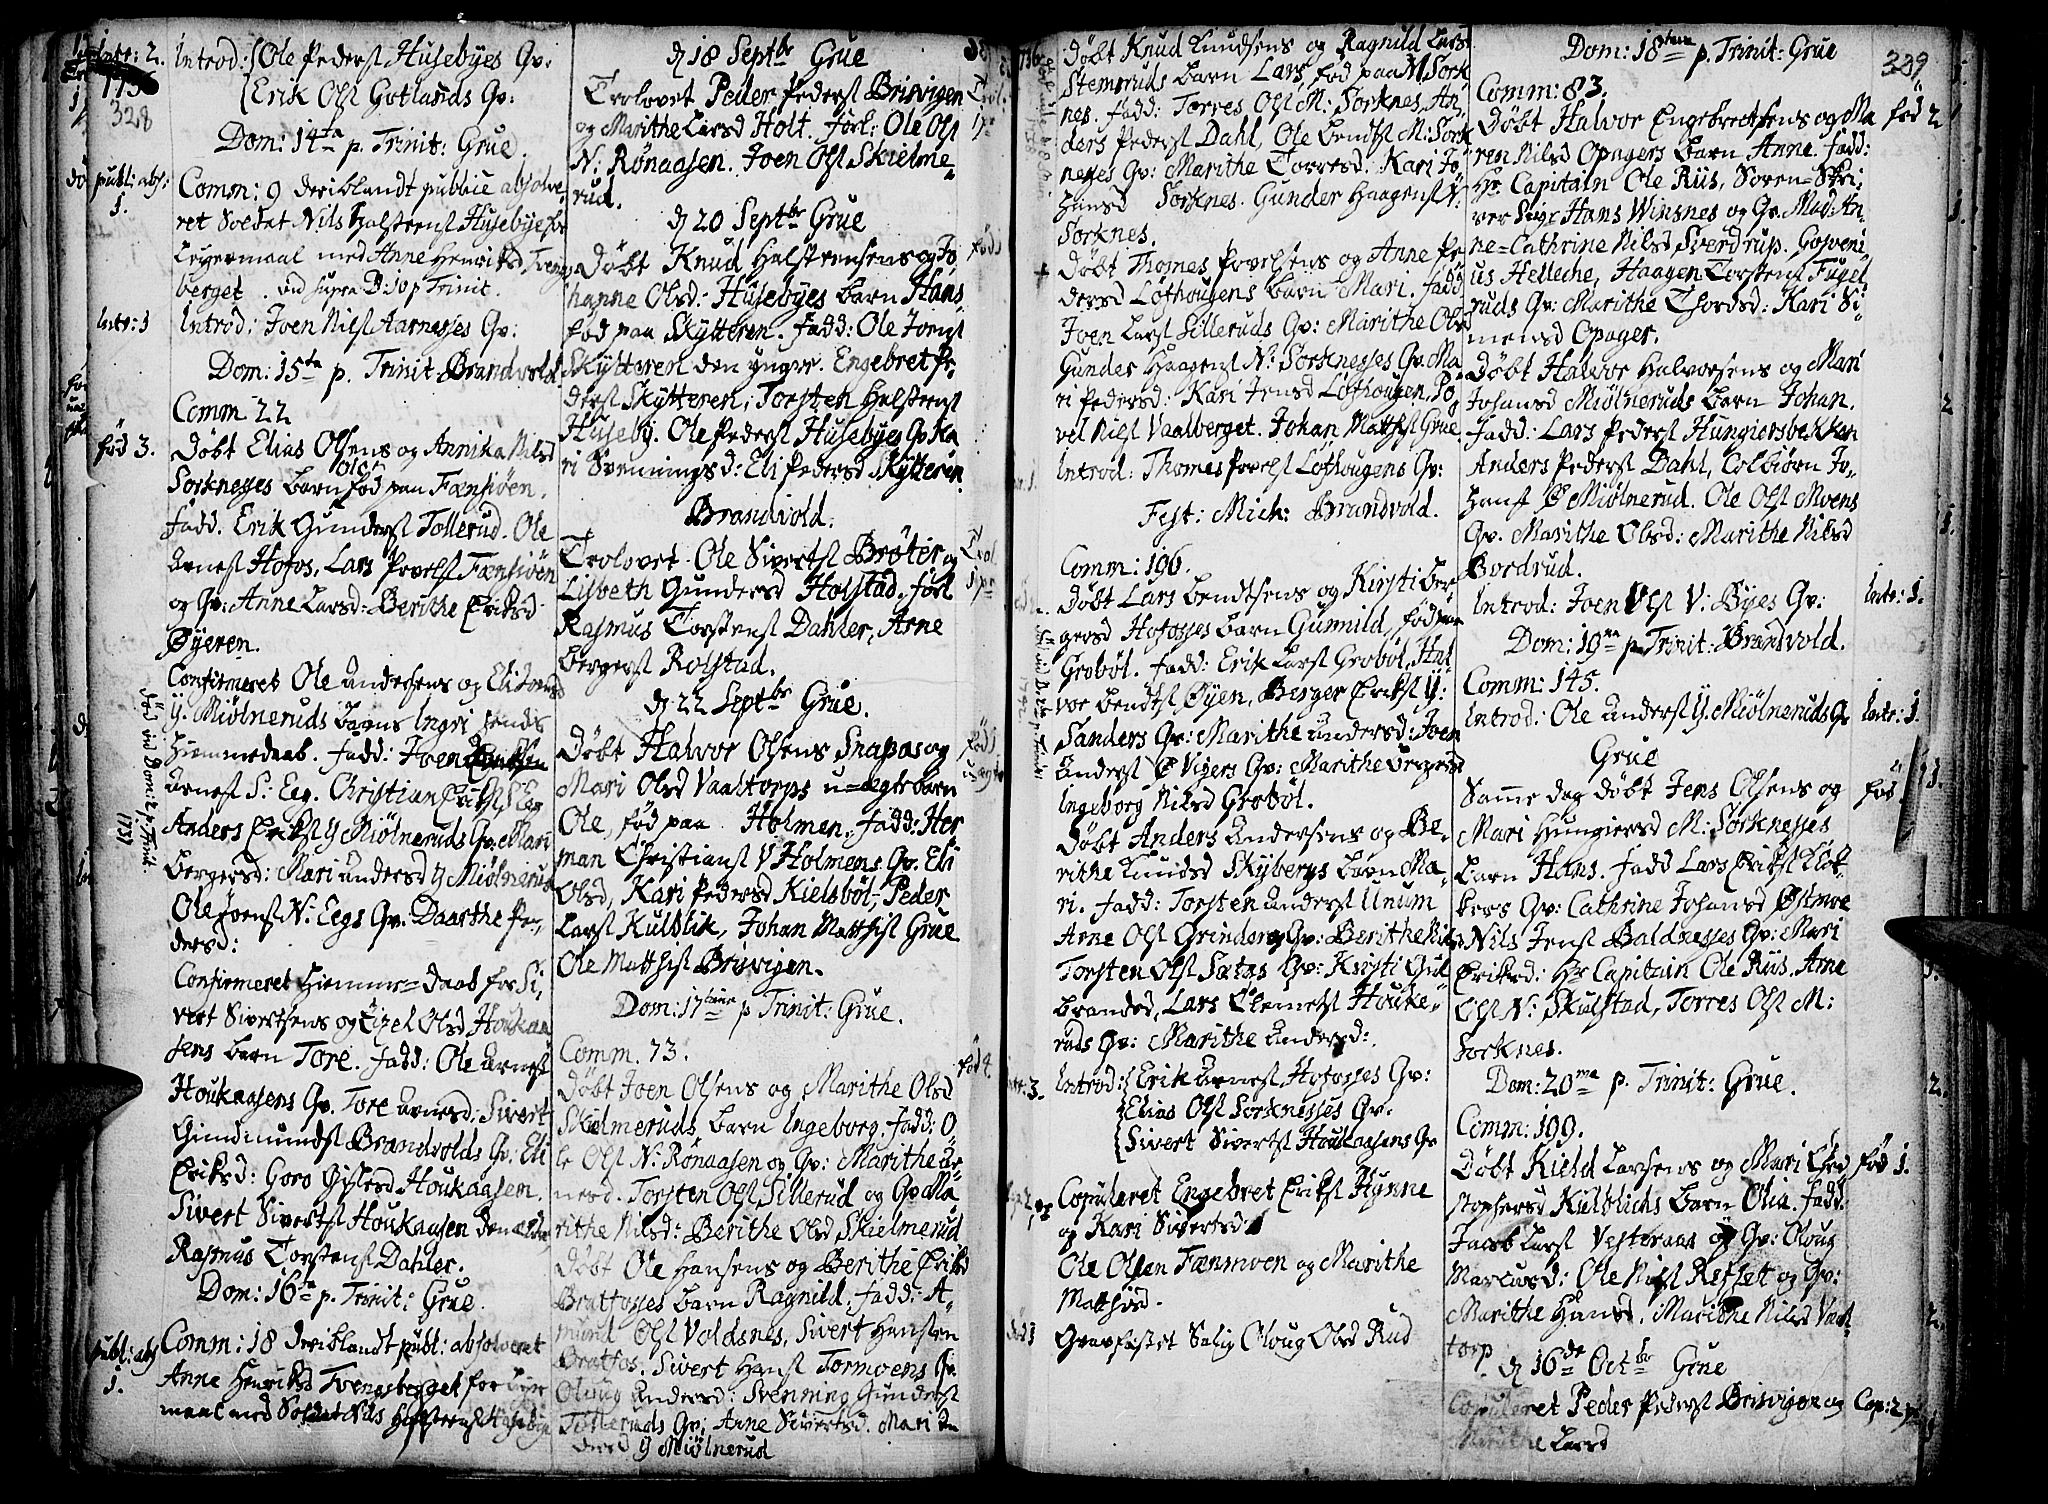 Introd: Ole Pederss Husebyes Qv:
Erik Olss Gotlands Qv:
1736
328
Dom: 14ta p. Trinit: Grue
publ: abs: 1.
Comm: 9 deriblandt publice absolve-
ret Soldat Nils Halsteenss Husebye for
Leyermaal med Anne Henriksd Tvengs-
berget. vid supra D: 10 p Trinit.
Intr: 1
Introd: Joen Nilss Aarnesses Qv:
Dom: 15ta p. Trinit Brandvold.
Comm 22
fød 3.
Døbt Elias Olsens og Annika Nilsd
Sorknesses barn Ole fød paa Fænsiöen.
Fadd. Erik Gunderss Tollerud. Ole
Arness Hofos, Lars Povelss Fænsiöen
og Qv: Anne Larsd: Berithe Eriksd
Øyeren.
Confirmeret Ole Andersens og Eli
Y. Miölneruds barns Ingri
Hiemmedaab. Fadd: Joen
Arness S: Eeg. Christian Erikss S: Eeg
Anders Erikss Y Miölneruds Qv: Mari
Bergersd: Mari Andersd Y Miölnerud
Ole Joenss N: Eegs Qv. Daarthe Pe-
dersd:
Confirmeret Hiemme-Daab for Si-
vert Sivertsens og Olsd Houkaa-
sens barn Tore. Fadd: Ole Arness
Houkaasens Qv. Tore Arnesd. Sivert
Gundmundss Brandvolds Qv: Eli
Eriksd: Goro Gislesd Houkaasen.
Sivert Sivertss Houkaasen den eldre,
Rasmus Torstenss Dahler.
Dom: 16ta p. Trinit: Grue.
publ: abs 1.
Comm: 18 deriblandt publ: absolveret
Anne Henriksd Tvengsberget for Leyer-
maal med Soldat Nils Halsteenss Husebye
d 18 Septbr Grue
Trolovet Peder Pederss Brisvigen
og Marithe Larsd Holt. Forl: Ole Olss
N: Rønaasen. Joen Olss Skielme-
rud.
d 20 Septbr Grue
Døbt Knud Halsteensens og Jo-
hanne Olsd: Husebyes barn Hans
fød paa Skytteren. Fadd: Ole Joenss
Skytteren den yngre. Engebret Pe-
derss Skytteren, Torsten Halsteenss
Huseby. Ole Pederss Husebyes Qv Ka-
ri Svenningsd: Eli Pedersd Skytteren
Brandvold.
Trolovet Ole Sivertss Brøter og
Lisbeth Gundersd Holstad. forl
Rasmus Torstenss Dahler, Arne
Bergerss Rolstad.
d 22 Septbr Grue.
Døbt Halvor Olsens Snapas og
Mari Olsd Vaaltorps u=ægte barn
Ole, fød paa Holmen. Fadd: Her-
man Christianss V Holmens Qv. Eli
Olsd, Kari Pedersd Kielsbøl, Peder
Larss Kulblik, Johan Matthiss Grue
Ole Matthiss Brisvigen.
Dom: 17tima p Trinit: Grue.
Comm. 73.
fød 4.
Døbt Joen Olsens og Marithe Olsd
Skielmeruds barn Ingeborg. Fadd: O-
le Olss N: Rønaasen og Qv: Marithe Ar-
nesd. Torsten Olss Sillerud og Qv Ma-
rithe Nilsd: Berithe Olsd Skielmerud
Døbt Ole Hansens og Berithe Eriksd
Bratfosses barn Ragnild. Fadd: A-
mund Olss Voldsnes, Sivert Hansen
Bratfos. Sivert Hanss Tormoens Qv
Oloug Andersd: Svenning Gunderss
Tilleruds Qv: Anne Sivertsd. Mari An-
dersd Y Miölnerud
Døbt Knud Knudsens og Ragnild Larsd
Stemsruds barn Lars, fød paa M. Sork-
nes. Fadd: Torres Olss M: Sorknes, An-
ders Pederss Dahl, Ole Bendtss M: Sork-
nesses Qv: Marithe Torresd: Kari Jo-
hansd Sorknes. Gunder Haagenss N:
Sorknes.
Døbt Thomas Povelsens og Anne Pe-
dersd Løthougens barn Mari. Fadd
Joen Larss Silleruds Qv: Marithe Olsd
Gunder Haagenss N: Sorknesses Qv. Ma-
ri Pedersd: Kari Jensd Løthougen, Po-
vel Nilss Vaalberget. Johan Matthss Grue.
Introd: Thomas Povelss Løthougens Qv:
Fest: Mich: Brandvold.
Comm: 196.
Døbt Lars Bendtsens og Kirsti Ber-
gersd Hofosses barn Gunnild, fød paa
Grobøl. Fadd: Erik Larss Grobøl, Hal-
vor Bendtss Øyen, Berger Erikss Y:
Sanders Qv: Marithe Andersd: Joen
Anderss Ø Vigers Qv: Marithe Bergersd
Ingeborg Nilsd Grobøl.
Døbt Anders Andersens og Be-
rithe Knudsd Skybergs barn Ma-
ri. Fadd: Torsten Anderss Unum
Arne Olss Grinders Qv: Berithe Nilsd
Torsten Olss Sætas Qv: Kirsti Gul-
brandsd, Lars Clemetss Houke-
ruds Qv: Marithe Andersd:.
Introd: Erik Arness Hofosses Qv:
Elias Olss Sorknesses Qv.
Sivert Sivertss Houkaasens Qv
Copuleret Engebret Erikss Hynne
og Kari Sivertsd
Ole Olsen Fænmoen og Marithe
Matthisd.
Gravfæstet Salig Oloug Olsd Rud
Dom: 18tava p. Trinit: Grue
339
Comm: 83.
fød 2
Døbt Halvor Engebrectsens og Ma-
ren Nilsd Opagers barn Anne. Fadd:
Hr Capitain Ole Riis, Soren-Skri-
ver Sigr Hans Winsnes og Qv. Mad: An-
ne=Cathrine Nilsd Sverdrup. Gosveni-
us Helleche, Haagen Torstenss Fugel-
ruds Qv: Marithe Thordsd: Kari Si-
mensd Opager.
Døbt Halvor Halvorsens og Mari
Johansd Miölneruds barn Johan.
Fadd: Lars Pederss Hungiersbekken
Anders Pederss Dahl, Colbiörn Jo-
hanss Ø Miölnerud. Ole Olss Moens
Qv. Marithe Olsd: Marithe Nilsd
Bordrud.
Intr: 1.
Introd: Joen Olss V: Byes Qv:
Dom: 19na p. Trinit: Brandvold.
Comm: 145.
Intr: 1.
Introd: Ole Anderss Y. Miölneruds Qv
Grue
fød 1.
Samme dag døbt Jens Olsens og
Mari Hungiersd M: Sorknesses
barn Hans. Fadd Lars Erikss Klok-
kers Qv: Cathrine Johansd Østmoe
Nils Jenss Baldnesses Qv: Mari
Eriksd: Hr Capitain Ole Riis, Arne
Olss N: Skulstad, Torres Olss M:
Sorknes.
Dom: 20ma p. Trinit: Grue.
Comm: 199.
fød 1.
Døbt Kield Larsens og Mari Chri-
stophersd Kulblichs barn Olia. Fadd:
Jacob Larss Vesteraas og Qv: Oloug
Marcusd: Ole Nilss Refset og Qv:
Marithe Hansd. Marithe Nilsd Vaal-
torp.
d 16de Octbr Grue
Cop: 2
Copuleret Peder Pederss Brisvigen og
Marithe Larsd